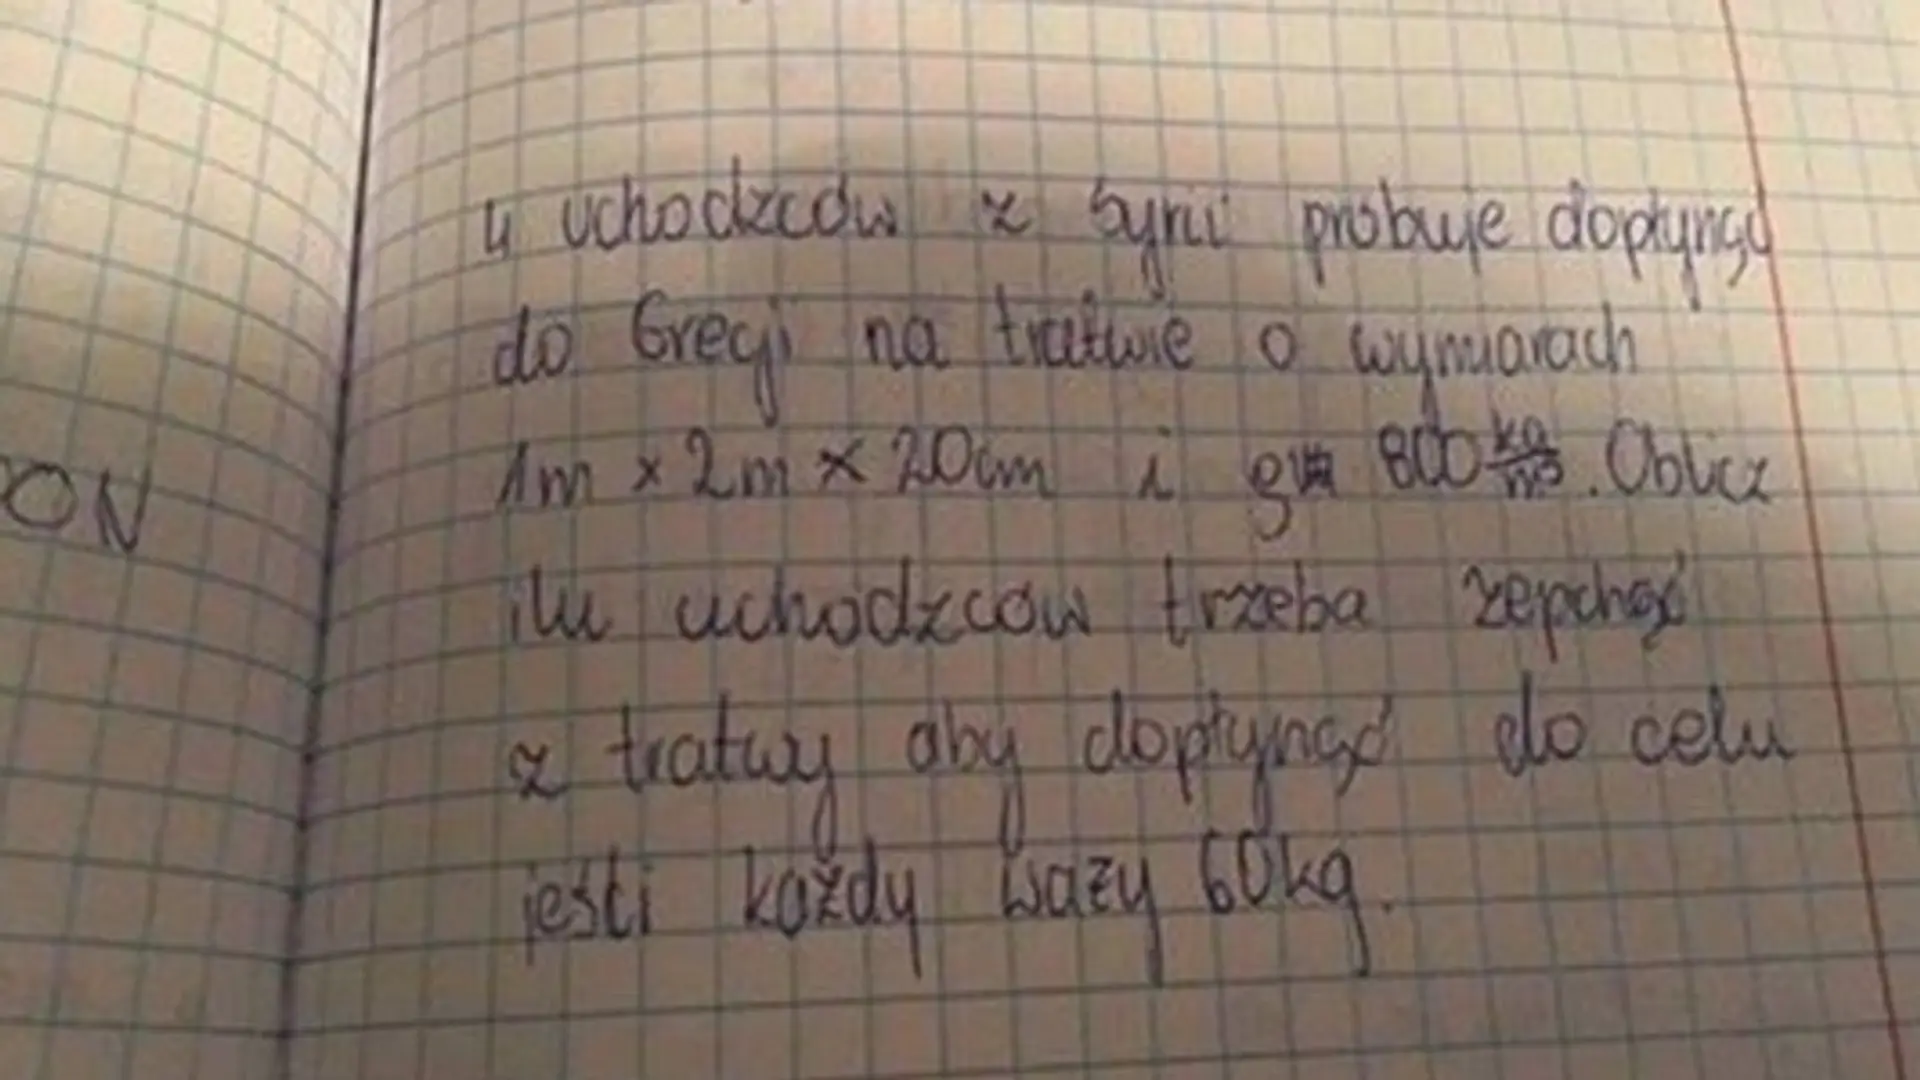 ON
4 uchodzców z Syrii próbuje dopłynąć
do Grecji na tratwie o wymiarach
1m x 2m x 20cm i 800 kg/m³. Oblicz
ilu uchodzców trzeba zepchąć
z tratwy aby dopłynąć do celu
jeśli każdy waży 60kg.